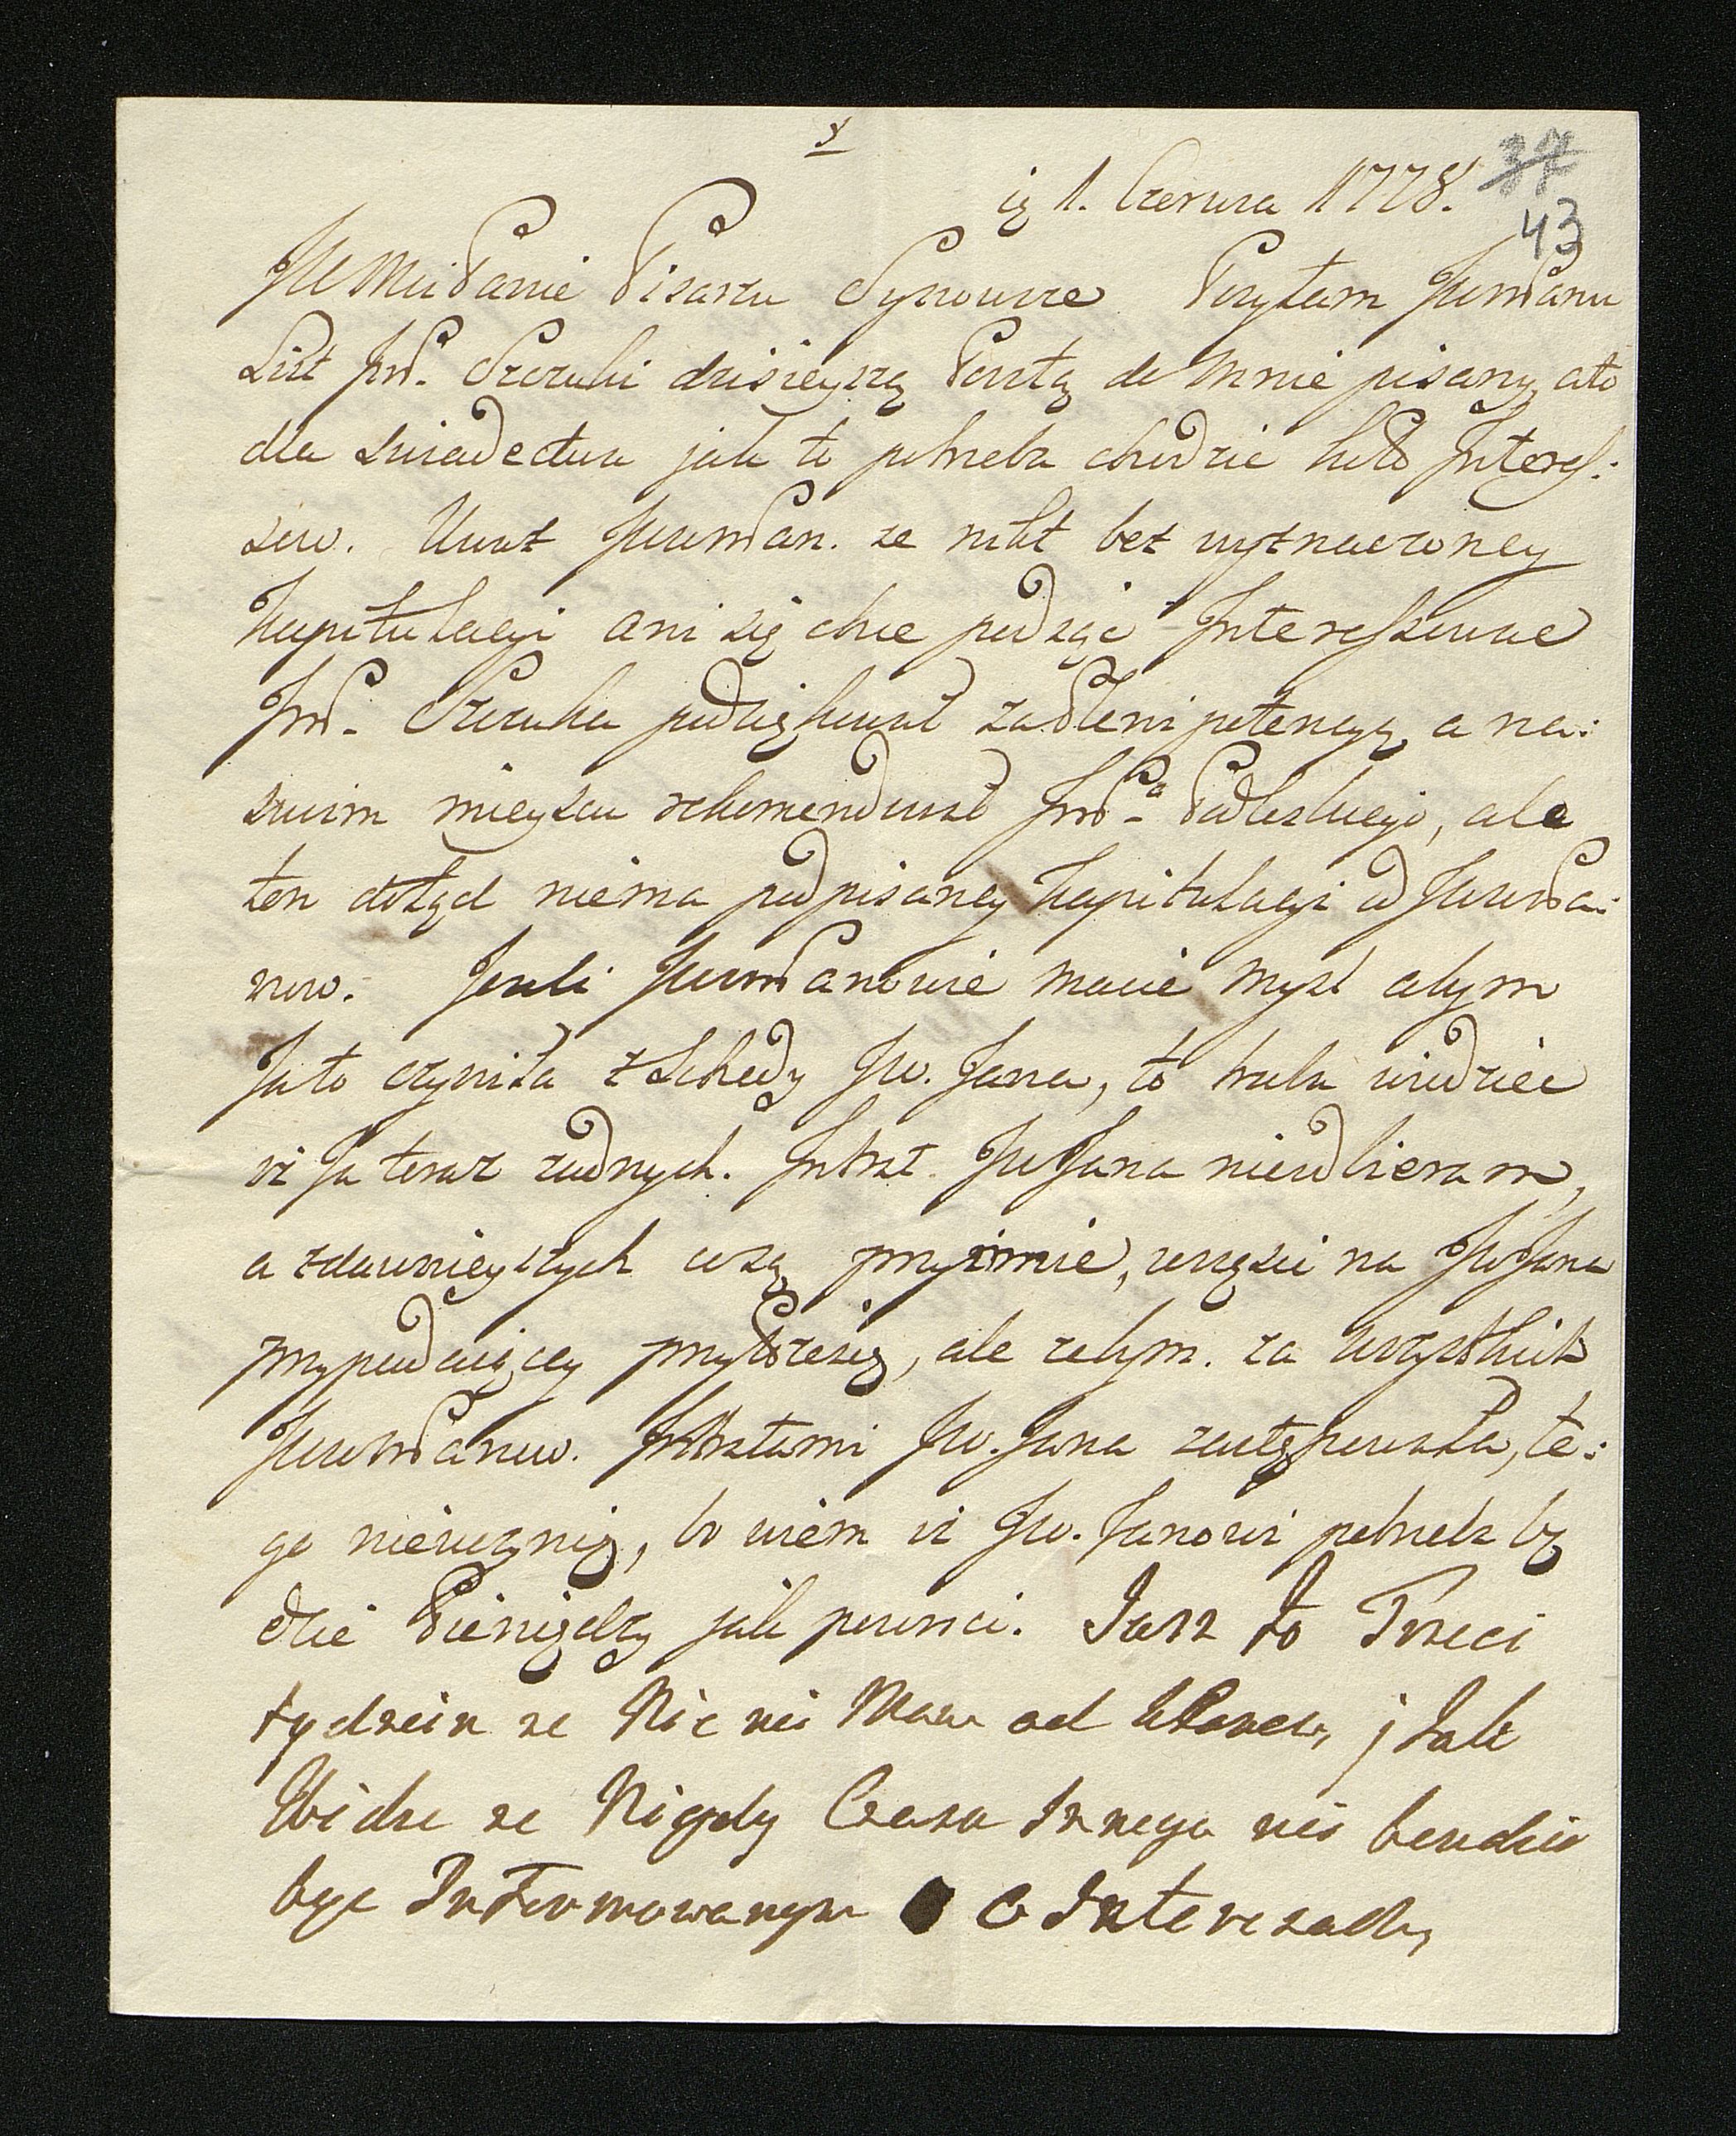 y
1. Czerwca 1778.
37
43
Panie Pisarzu Synowcze Posyłam JwmPanu
List JmP. Szczuki dzisieyszą Pocztą do mnie pisany, ato
dla swiadectwa jak to potrzeba chodzic koło Interes:
sow. Uważ JwwmPan. ze nikt bez wyznaczoney
kapitulacyi ani się chce podjąć Interessowac
JmP. Szczuka podziękował za Plenipotencyą, a na:
swim mieyscu rekomendował JmPa Podleskiego, ale
ten dotąd niema podpisaney kapitulacyi od JwwmPa:
now. Jezli JwwmPanowie macie mysl abym
Ja to czyniła z Schedy Jw. Jana, to trzeba wiedziec
iz Ja teraz zadnych. Intrat JwJana nieodbieram,
a zdawnieyszych przyimie, części na JwJana
przypadaiącey przyłożesię, ale zebym. za wszystkich
JwwmPanow. Intratami Jw. Jana zastępowała, te:
go nieuczynię, bo wiem iz Jw. Janowi potrzeba bę
dzie Pieniędzy jak powroci. Jusz to Trzeci
tydzein ze Nic nie Mam od j Jak
Widze ze Nigdy Czasu Inego nie bendzie
byc Informowanym o Interesach,